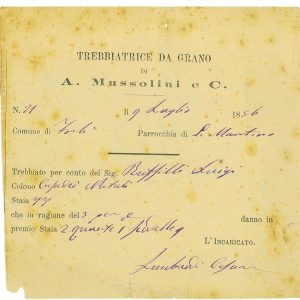 TREBBIATRICE DA GRANO
DI
A. Mussolini e C.
N. 21 li 9 Luglio 1896
Comune di Forlì Parrocchia di S. Martino
Trebbiato per conto del Sig. Ruffilli Luigi
Colono
Staia 44
che in ragione del 3 per % danno in
premio Staia 2 quarte 1
L'INCARICATO.
Lombardi